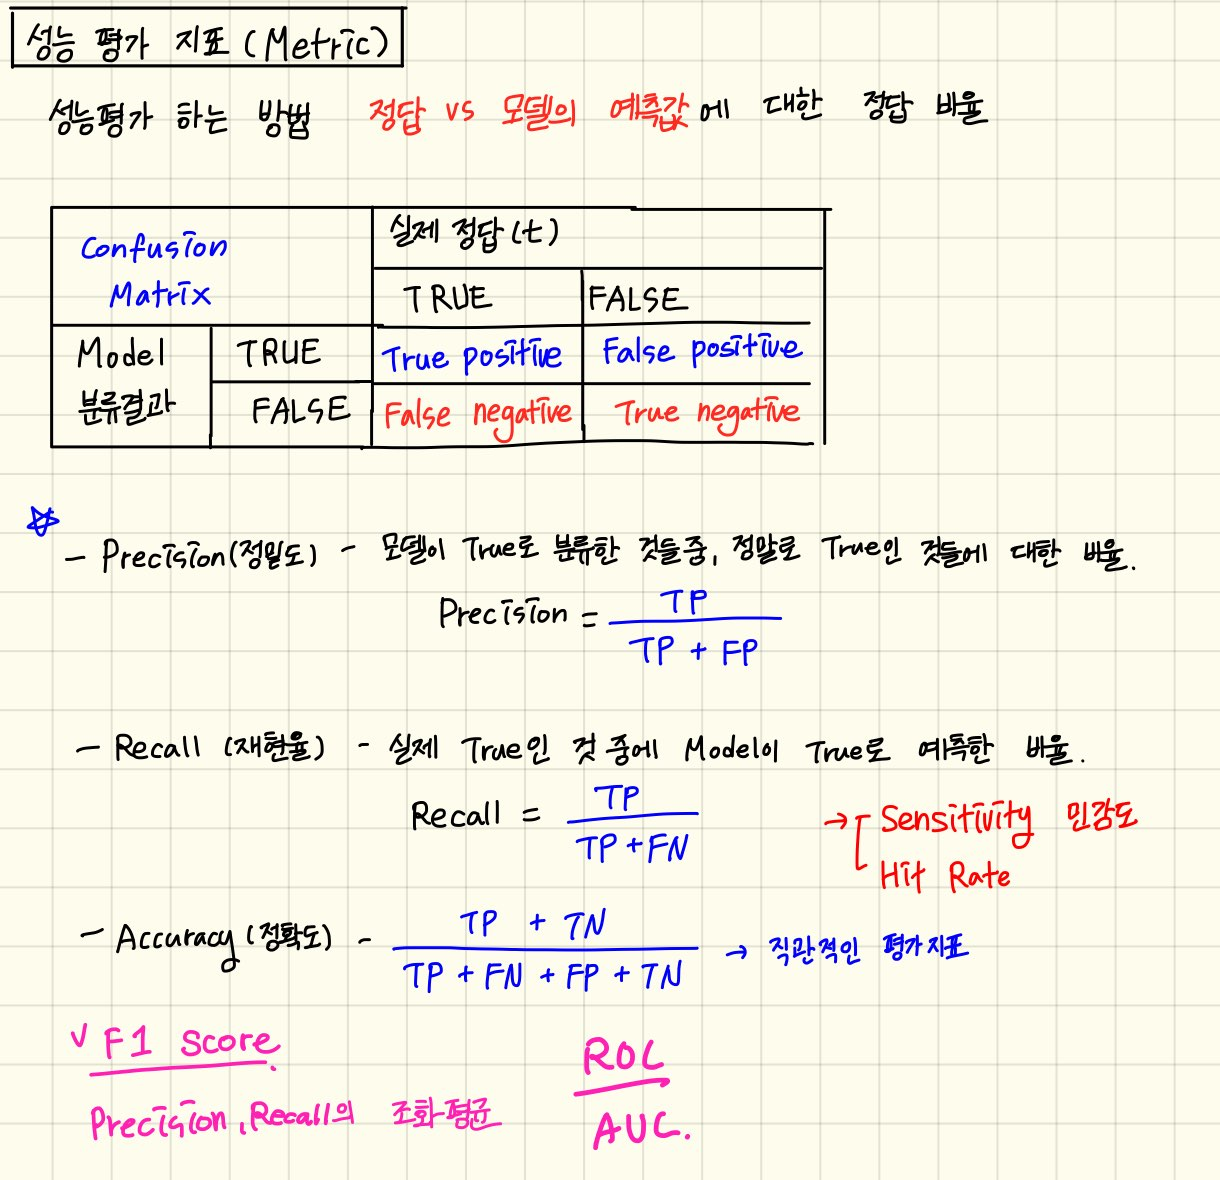 성능 평가 지표 (Metric)
성능평가 하는 방법 정답 vs 모델의 예측값에 대한 정답 비율
Confusion Matrix
실제 정답(t)
TRUE FALSE
Model 분류결과
TRUE True positive False positive
FALSE False negative True negative
☆
- Precision(정밀도) - 모델이 True로 분류한 것들중, 정말로 True인 것들에 대한 비율.
Precision = TP / TP + FP
- Recall (재현율) - 실제 True인 것 중에 Model이 True로 예측한 비율.
Recall = TP / TP + FN
→ Sensitivity 민감도
Hit Rate
- Accuracy(정확도) - TP + TN / TP + FN + FP + TN → 직관적인 평가지표
v F1 Score.
Precision, Recall의 조화평균
ROC
AUC.